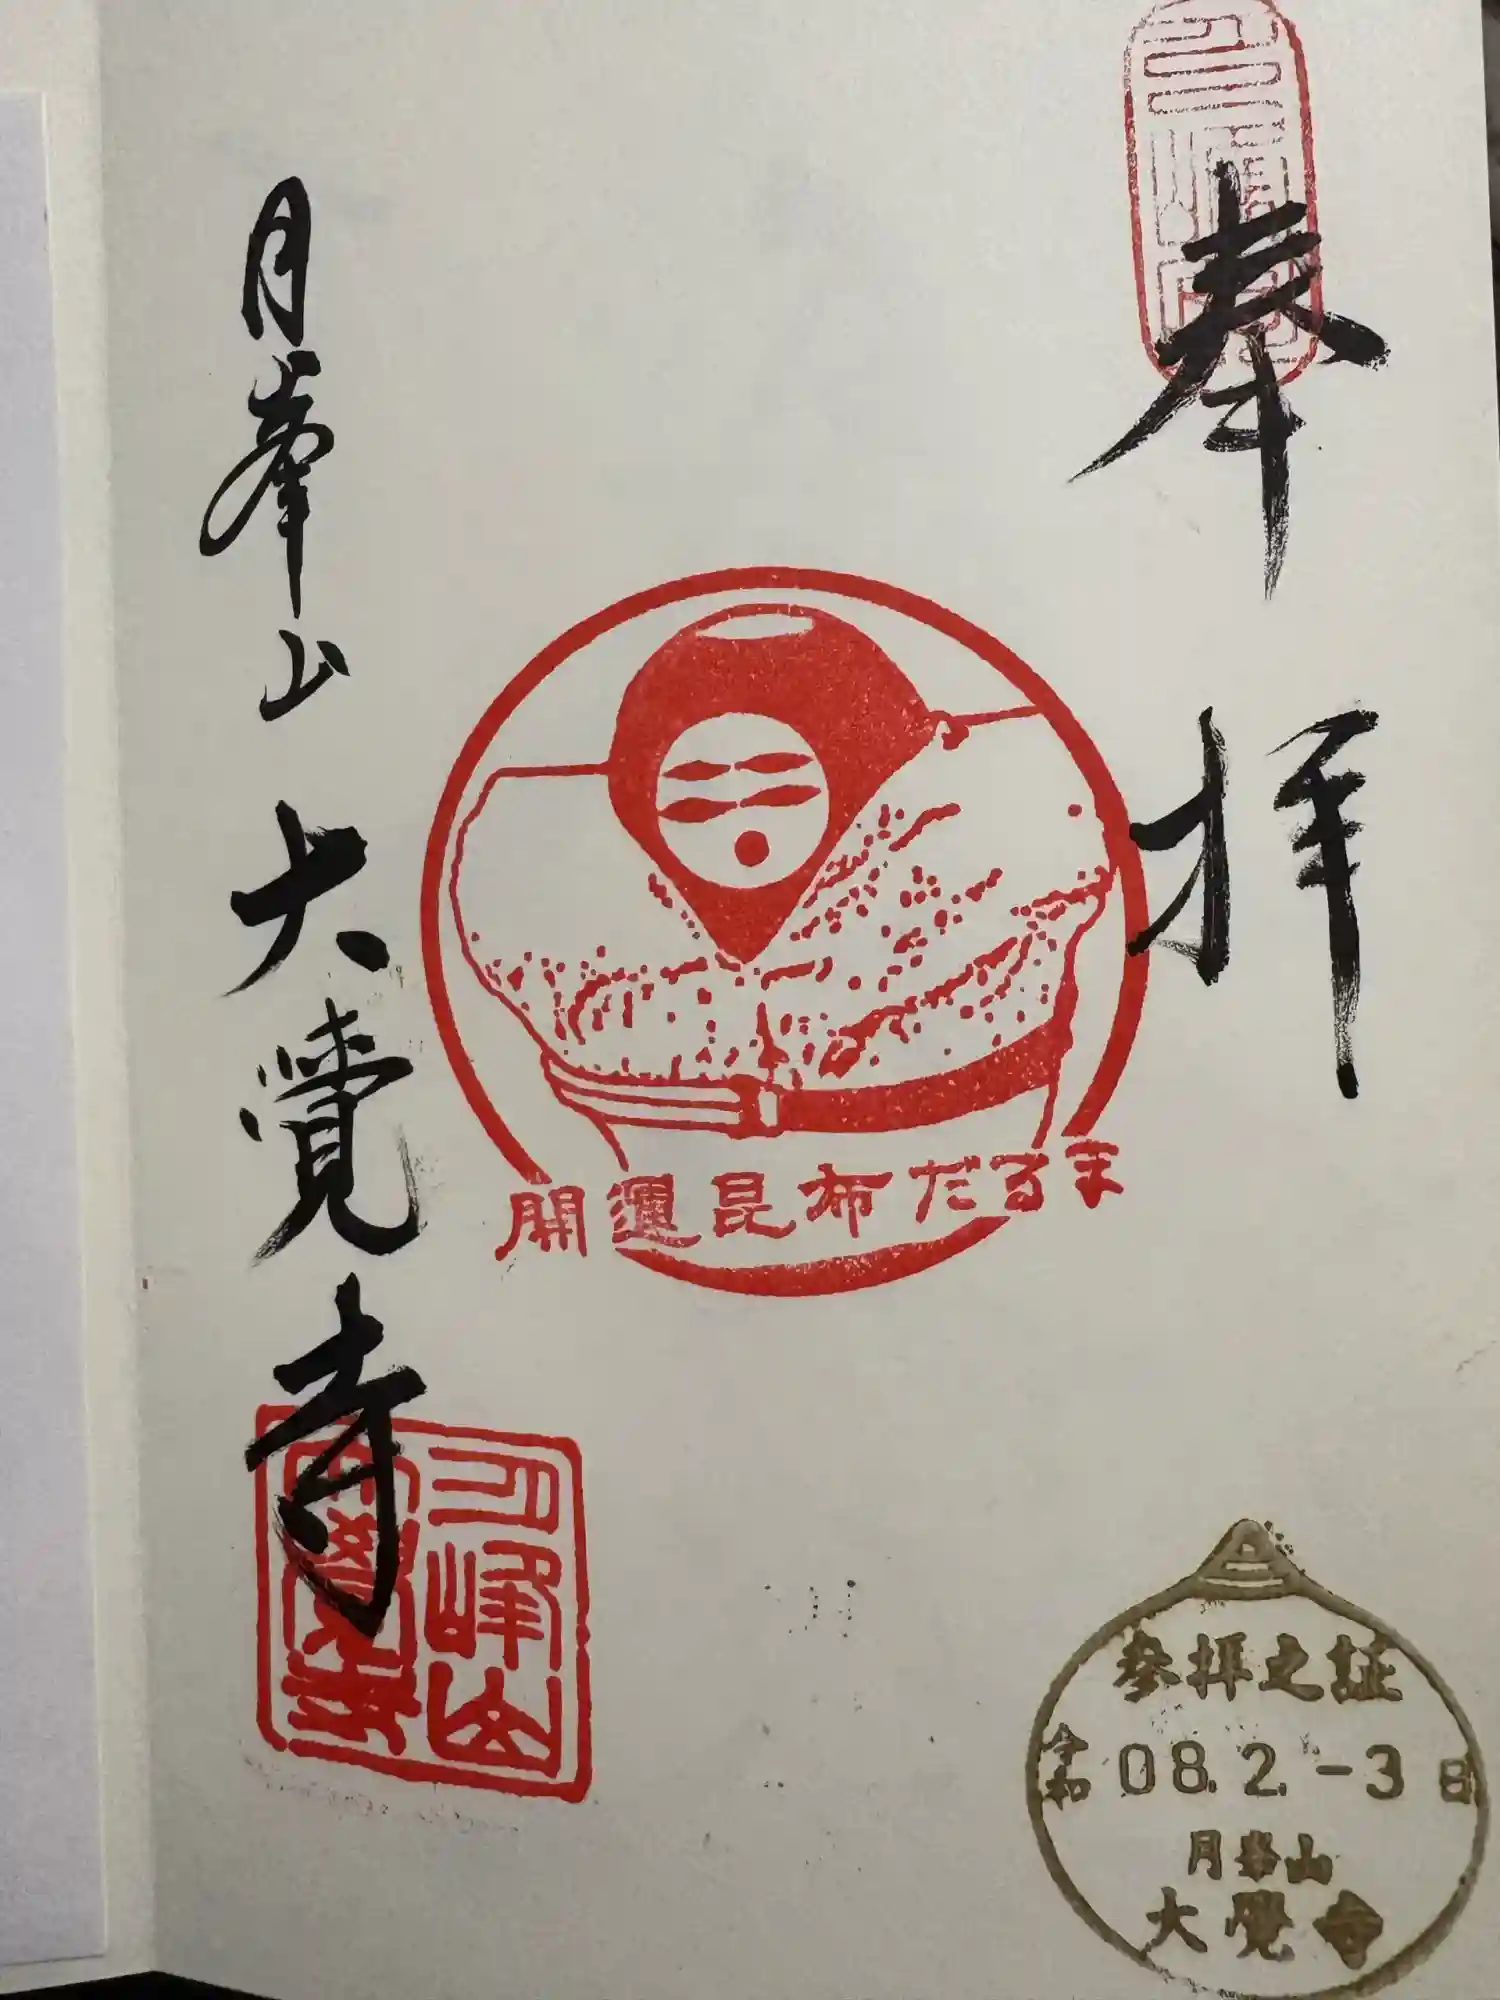 奉拝
開運昆布だるま
月峯山大覺寺
月峰山
大覺寺
参拝之証
令和08.2.-3日
月峯山
大覺寺